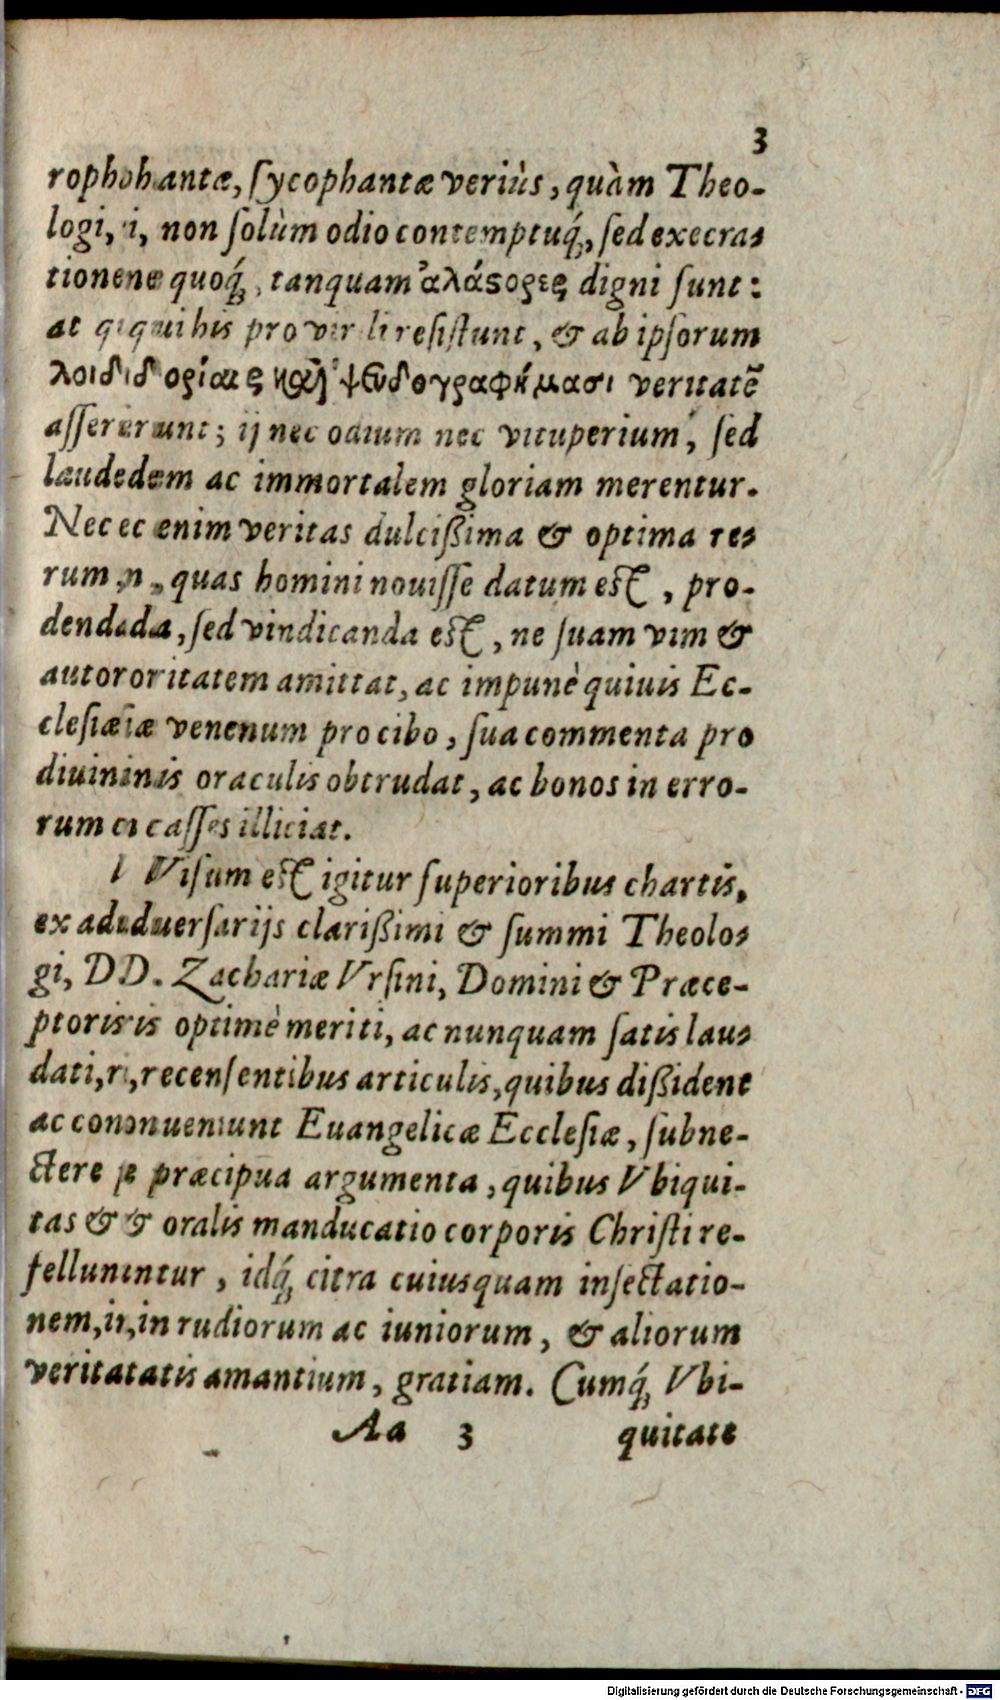 3
rophantæ, ſycophantæ veriùs, quàm Theo-
logi, non ſolùm odio contemptuq́;, ſed execra-
tione quoq́;, tanquam ἀλάϛορες digni ſunt:
at qui his pro vir li reſiſtunt, & ab ipſorum
λοιδορίαις καὶ ψευδογραφήμασι veritatē
aſſerunt; ij nec odium nec vituperium, ſed
laudem ac immortalem gloriam merentur.
Nec enim veritas dulcißima & optima re-
rum, quas homini nouiſſe datum eſt, pro-
denda, ſed vindicanda eſt, ne ſuam vim &
autoritatem amittat, ac impunè quiuis Ec-
cleſiæ venenum pro cibo, ſua commenta pro
diuinis oraculis obtrudat, ac bonos in erro-
rum caſſes illiciat.
Viſum eſt igitur ſuperioribus chartis,
ex aduerſarijs clarißimi & ſummi Theolo-
gi, DD. Zachariæ Vrſini, Domini & Præce-
ptoris optimè meriti, ac nunquam ſatis lau-
dati, recenſentibus articulis, quibus dißident
ac conueniunt Euangelicæ Eccleſiæ, ſubne-
ctere præcipua argumenta, quibus Vbiqui-
tas & oralis manducatio corporis Chriſti re-
felluntur, idq́; citra cuiusquam inſectatio-
nem, in rudiorum ac iuniorum, & aliorum
veritatis amantium, gratiam. Cumq́; Vbi-
Aa 3 quitate
Digitalisierung gefördert durch die Deutsche Forschungsgemeinschaft - DFG